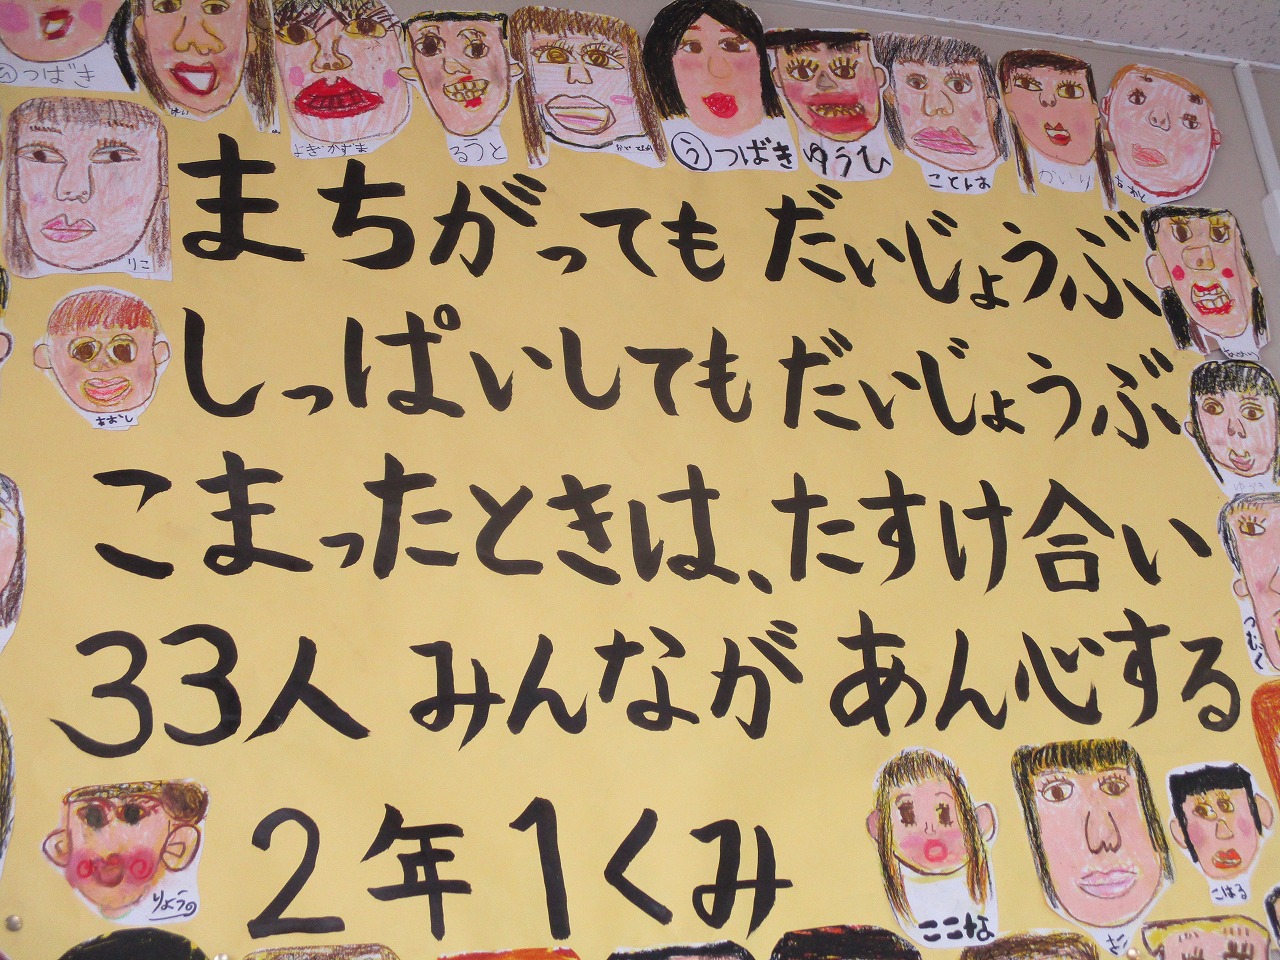 つばき
けい
よぎ かずま
るうと
うつばき
ゆうひ
ことは
かいり
りこ
まちがっても だいじょうぶ
しっぱいしても だいじょうぶ
こまったときは、たすけ合い
33人 みんなが あん心する
2年1くみ
つむぐ
りょうの
ここな
こはる